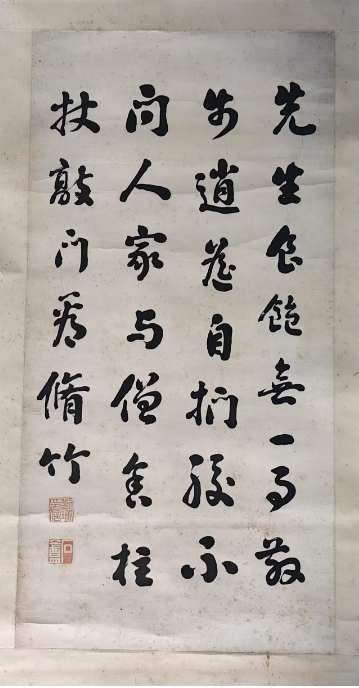 先生食飽無一事散
步逍遙自捫腹不
問人家与僧舍柱
杖敲門看脩竹